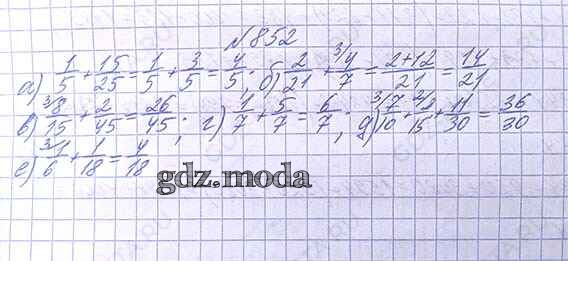 №852
а) 1/5 + 15/25 = 1/5 + 3/5 = 4/5; б) 2/21 + ³⁾4/7 = 2+12/21 = 14/21
в) ³⁾8/15 + 2/45 = 26/45; г) 1/7 + 5/7 = 6/7; д) ³⁾7/10 + ²⁾2/15 + 11/30 = 36/30
е) ³⁾1/6 + 1/18 = 4/18
gdz.moda